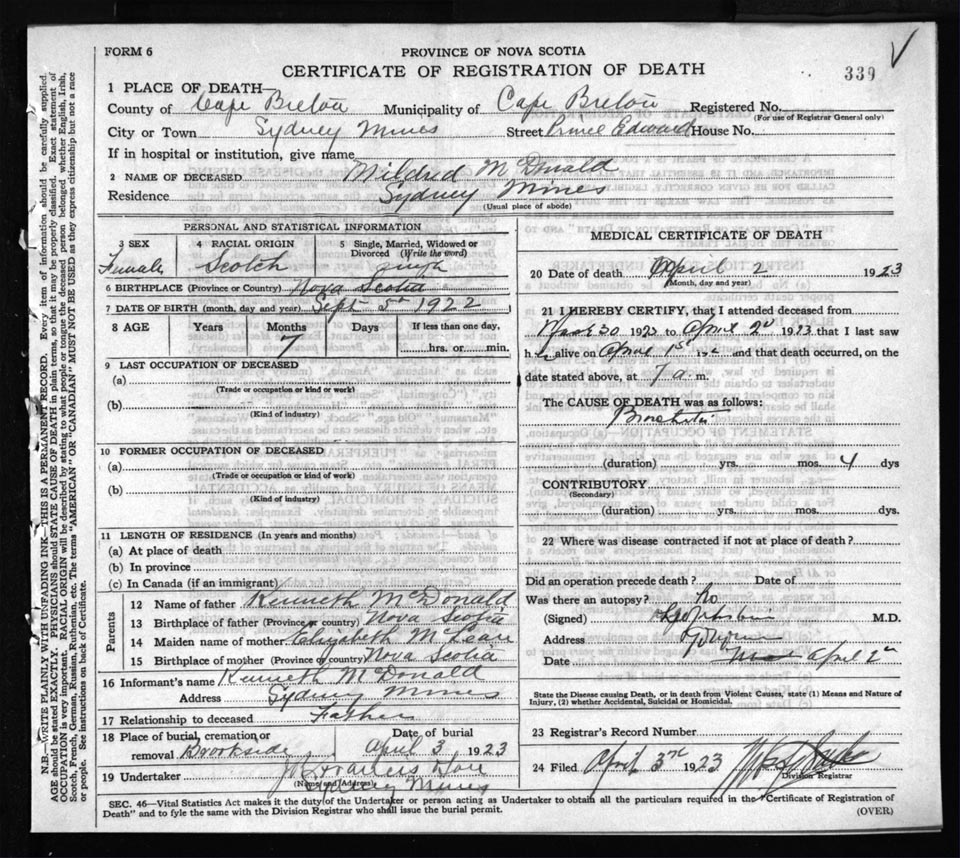 FORM 6
PROVINCE OF NOVA SCOTIA
CERTIFICATE OF REGISTRATION OF DEATH
339
1 PLACE OF DEATH
County of Cape Breton Municipality of Cape Breton Registered No.
(For use of Registrar General only)
City or Town Sydney Mines Street Prince Edward House No.
If in hospital or institution, give name
2 NAME OF DECEASED Mildred McDonald
Residence Sydney Mines
(Usual place of abode)
PERSONAL AND STATISTICAL INFORMATION
3 SEX 4 RACIAL ORIGIN 5 Single, Married, Widowed or Divorced (Write the word)
Female Scotch single
6 BIRTHPLACE (Province or Country) Nova Scotia
7 DATE OF BIRTH (month, day and year) Sept 5th 1922
8 AGE Years Months Days If less than one day,
7 hrs. or min.
9 LAST OCCUPATION OF DECEASED
(a)
(Trade or occupation or kind of work)
(b)
(Kind of industry)
10 FORMER OCCUPATION OF DECEASED
(a)
(Trade or occupation or kind of work)
(b)
(Kind of industry)
11 LENGTH OF RESIDENCE (In years and months)
(a) At place of death
(b) In province
(c) In Canada (if an immigrant)
Parents
12 Name of father Kenneth McDonald
13 Birthplace of father (Province or country) Nova Scotia
14 Maiden name of mother Elizabeth McLean
15 Birthplace of mother (Province or country) Nova Scotia
16 Informant's name Kenneth McDonald
Address Sydney Mines
17 Relationship to deceased Father
18 Place of burial, cremation or removal Brookside
Date of burial April 3 1923
19 Undertaker
(Name and Address)
Sydney Mines
MEDICAL CERTIFICATE OF DEATH
20 Date of death April 2 1923
(Month, day and year)
21 I HEREBY CERTIFY, that I attended deceased from
30 1923 to April 2 1923 that I last saw
h alive on April 1st 192 and that death occurred, on the
date stated above, at a m.
The CAUSE OF DEATH was as follows:
(duration) yrs. mos. 4 dys
CONTRIBUTORY
(Secondary)
(duration) yrs. mos. dys.
22 Where was disease contracted if not at place of death?
Did an operation precede death? Date of
Was there an autopsy? No
(Signed) M.D.
Address
Date April 2
State the Disease causing Death, or in death from Violent Causes, state (1) Means and Nature of
Injury, (2) whether Accidental, Suicidal or Homicidal.
23 Registrar's Record Number
24 Filed April 3rd 1923
Division Registrar
SEC. 46—Vital Statistics Act makes it the duty of the Undertaker or person acting as Undertaker to obtain all the particulars required in the "Certificate of Registration of
Death" and to fyle the same with the Division Registrar who shall issue the burial permit.
(OVER)
N.B.—WRITE PLAINLY WITH UNFADING INK—THIS IS A PERMANENT RECORD. Every item of information should be carefully supplied.
AGE should be stated EXACTLY. PHYSICIANS should STATE CAUSE OF DEATH in plain terms, so that it may be properly classified. Exact statement of
OCCUPATION is very important. RACIAL ORIGIN will be described by stating to what people or tongue the deceased person belonged whether English, Irish,
Scotch, French, German, Russian, Ruthenian, etc. The terms "AMERICAN" OR "CANADIAN" MUST NOT BE USED as they express citizenship but not a race
or people. See instructions on back of Certificate.